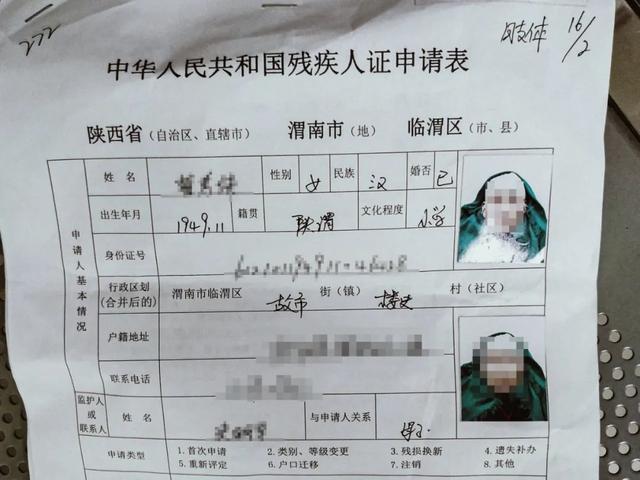 222
肢体 16/2
中华人民共和国残疾人证申请表
陕西省（自治区、直辖市） 渭南市（地） 临渭区（市、县）
申请人基本情况
姓名 性别 女 民族 汉 婚否 已
出生年月 1949.11 籍贯 陕渭 文化程度 小学
身份证号
行政区划（合并后的） 渭南市临渭区 故市 街（镇） 村（社区）
户籍地址
联系电话
监护人或联系人 姓名 与申请人关系
申请类型 1.首次申请 2.类别、等级变更 3.残损换新 4.遗失补办
5.重新评定 6.户口迁移 7.注销 8.其他